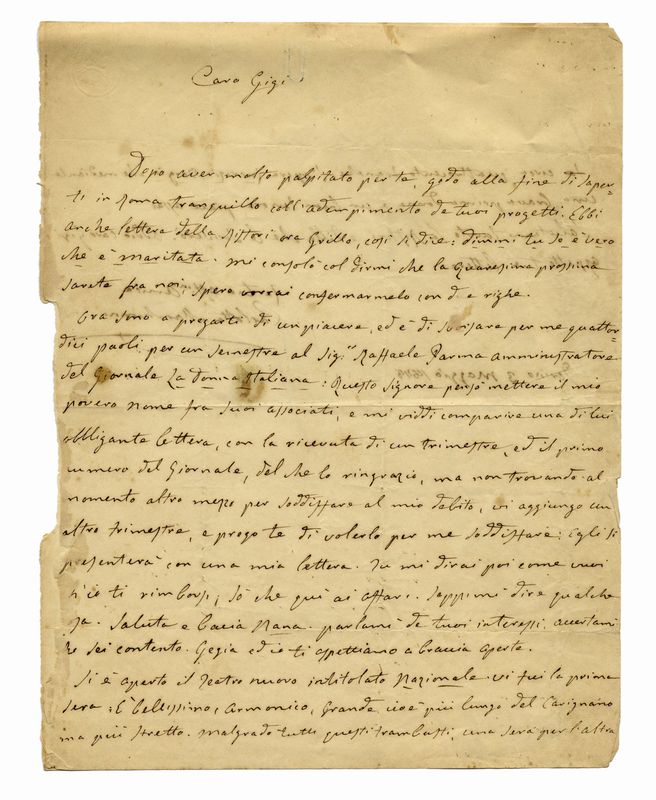 Caro Gigi
Dopo aver molto palpitato per te, godo alla fine di saper=
ti in Roma tranquillo coll'adempimento de tuoi progetti. Ebbi
anche lettera della Ristori ora Grillo, così si dice: dimmi tu se è vero
che è maritata. Mi consolò col dirmi che la Quaresima prossima
sarete fra noi, spero vorrai confermarmelo con d e righe.
Ora sono a pregarti di un piacere, ed è di sborsare per me quattor=
dici paoli per un semestre al Sig.r Raffaele Parma amministratore
del Giornale La Donna Italiana: Questo signore pensò mettere il mio
povero nome fra suoi associati, e mi viddi comparire una di lui
obbligante lettera, con la ricevuta di un trimestre, ed il primo
numero del Giornale, del che lo ringrazio, ma non trovando al
momento altro mezzo per soddisfare al mio debito, vi aggiungo un
altro trimestre, e prego te di volerlo per me soddisfare: Egli si
presenterà con una mia lettera. Tu mi dirai poi come vuoi
ch'io ti rimborsi, so che qui ai affari. Sappimi dire qualche
sa. Saluta e bacia Nana. parlami de tuoi interessi, accertami
se sei contento. Gegia ed io ti aspettiamo a braccia aperte.
Si è aperto il Teatro nuovo intitolato Nazionale. vi fui la prima
sera: È bellissimo, armonico, grande cioè più lungo del Carignano
ma più stretto. Malgrado tutti questi trambusti, una sera per l'altra